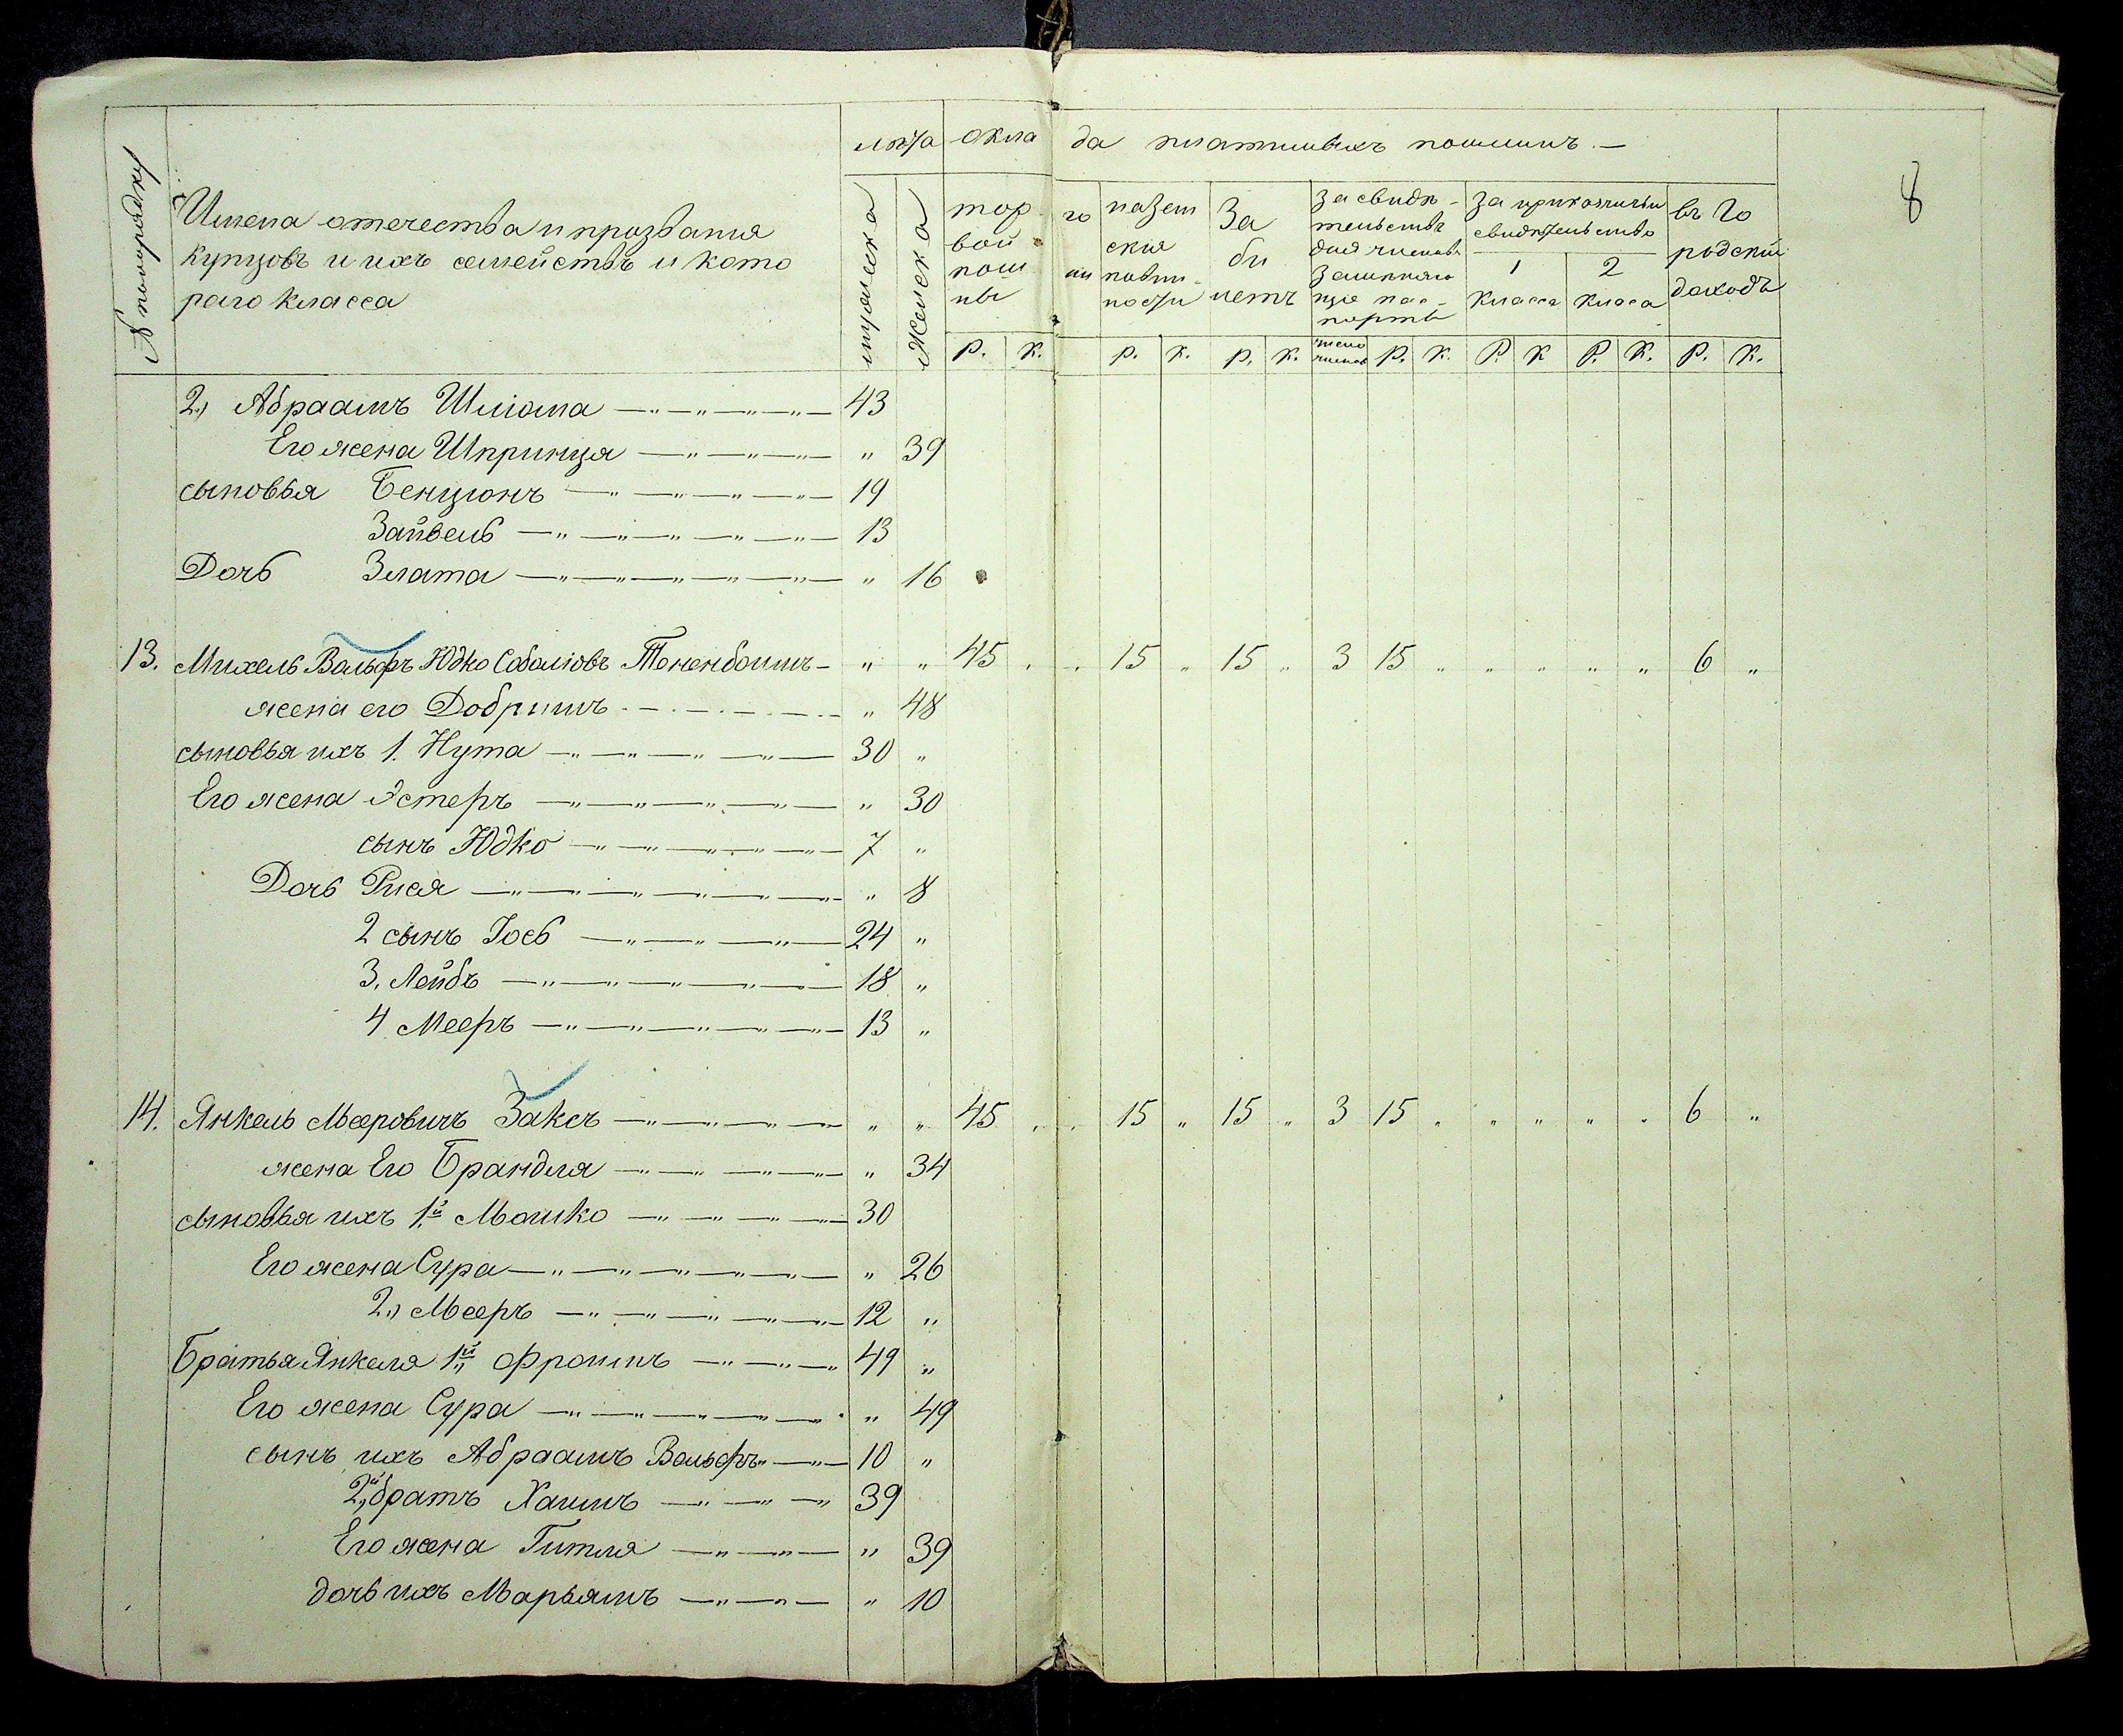 № по порядку
Имена отечества и прозвания
купцовъ и ихъ семействъ и кото
раго класса
лѣта
мужеска
женска
окла да платимыхъ пошлинъ. —
тор го
вой
пош ли
ны
на зем
скія
повин-
ности
За
би
летъ
За свидѣ-
тельства
для членовъ
За прикащичьи
свидѣтельства
1 2
класса класса
въ го
родской
доходъ
р. к. р. к. р. к. число членовъ р. к. Р. К Р. К. Р. К.
8
2., Абраамъ Шліома 43
Его жена Шпринца " 39
сыновья Бенціонъ 19
Зайвель 13
Дочь Злата " 16
13. Михель Вольфъ Юдко Соболіовъ Тененбоимъ " " 45 . . 15 " 15 " 3 15 " " " " " 6 "
жена его Добришъ " 48
сыновья ихъ 1. Нута 30 "
Его жена Эстеръ " 30
сынъ Юдко 7 "
Дочь Рися " 8
2 сынъ Іось 24 "
3. Лейбъ 18 "
4 Мееръ 13 "
14. Янкель Мееровичъ Заксъ " " 45 . . 15 " 15 " 3 15 " " " " " 6 "
жена Его Брандля " 34
сыновья ихъ 1й Мошко 30
Его жена Сура " 26
2., Мееръ 12 "
Братья Янкеля 1й Фроимъ 49 "
Его жена Сура " 49
сынъ ихъ Абраамъ Вольфъ 10 "
2й братъ Хаимъ 39
Его жена Гитля " 39
дочь ихъ Марьямъ " 10